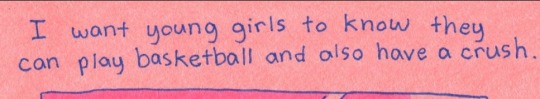 I want young girls to know they
can play basketball and also have a crush.